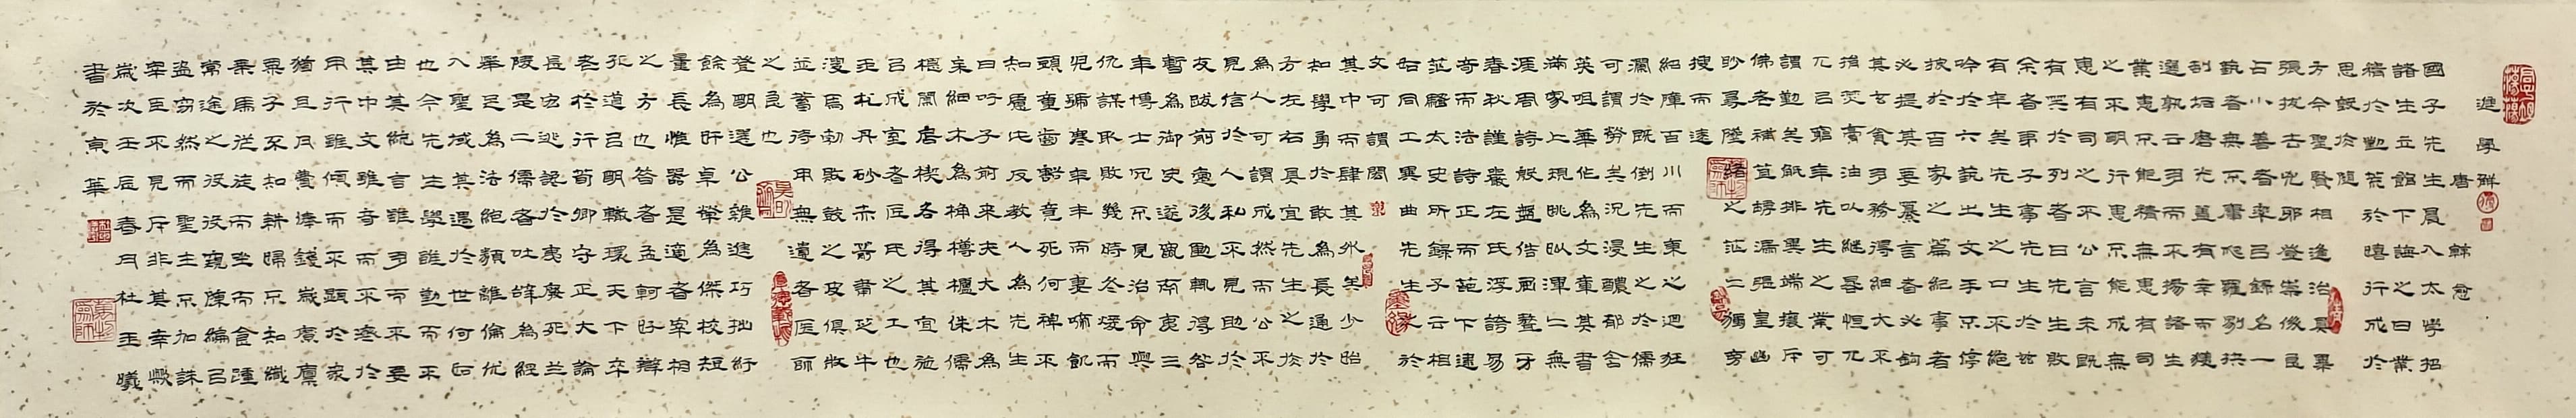 進學解
唐 韓愈
國子先生晨入太學招
諸生立館下誨之曰業
精於勤荒於嬉行成於
思毀於隨
方今聖賢相逢治具畢
張拔去兇邪登崇俊良
占小善者率以錄名一
藝者無不庸爬羅剔抉
刮垢磨光蓋有幸而獲
選孰云多而不揚諸生
業患不能精無患有司
之不明行患不能成無
患有司之不公言未既
有笑於列者曰先生欺
余者弟子事先生於茲
有年矣先生之口不絕
吟於六藝之文手不停
披於百家之篇紀事者
必提其要纂言者必鉤
其玄貪多務得細大不
捐焚膏油以繼晷恒兀
兀以窮年先生之業可
謂勤矣觝排異端攘斥
佛老補苴罅漏張皇幽
眇尋墜緒之茫二獨旁
搜而遠
紹障百川而東之迴狂
瀾於既倒先生之於儒
可謂勞矣況浸醲郁含
英咀華作為文章其書
滿家上現姚姒渾二無
涯周詩殷盤佶屈聱牙
春秋謹嚴左氏浮誇易
奇而法詩正而葩下逮
莊騷太史所錄子云相
如同工異曲先生之於
文可謂閎
其中而肆其外矣少始
知學勇於敢為長通於
方左右具宜先生之於
為人可謂成矣然而公不
見信於人私不見助於
友跋前躓後動輒得咎
暫為御史遂竄南夷三
年博士冗不見治命與
仇謀取敗幾時冬煖而
兒號寒年豐而妻啼飢
頭童齒豁竟死何裨不
知慮此反教人為先生
曰吁子來前夫大木為
杗細木為桷欂櫨侏儒
椳闑扂楔各得其宜施
以成室者匠氏之工也
玉札丹砂赤箭青芝牛
溲馬勃敗鼓之皮俱收
並蓄待用無遺者醫師
之良也
登明選公雜進巧拙紆
餘為妍卓犖為傑校短
量長惟器是適者宰相
之方也昔者孟軻好辯
孔道以明轍環天下卒
老於行荀卿守正大論
是弘逃讒於楚廢死蘭
陵是二儒者吐辭為經
舉足為法絕類離倫優
入聖域其遇於世何如
也今先生學雖勤而不
由其統言雖多而不要
其中文雖奇而不濟於
用行雖修而不顯於眾
猶且月費俸錢歲靡廩
粟子不知耕婦不知織
乘馬從徒安坐而食踵
常途之役役窺陳編以
盜竊然而聖主不加誅
宰臣不見斥非其幸歟
歲次壬辰春月杜玉曦
書於京華